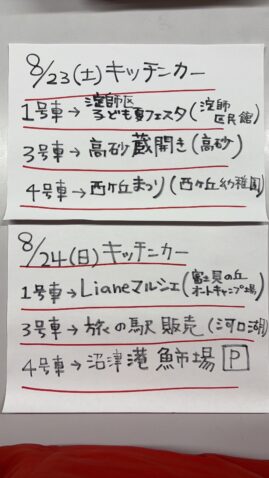 8/23(土)キッチンカー
1号車→淀師区子ども夏フェスタ(淀師区民館)
3号車→高砂蔵開き(高砂)
4号車→西ケ丘まつり(西ケ丘幼稚園)
8/24(日)キッチンカー
1号車→Lianeマルシェ(富士見の丘オートキャンプ場)
3号車→旅の駅販売(河口湖)
4号車→沼津港魚市場 P